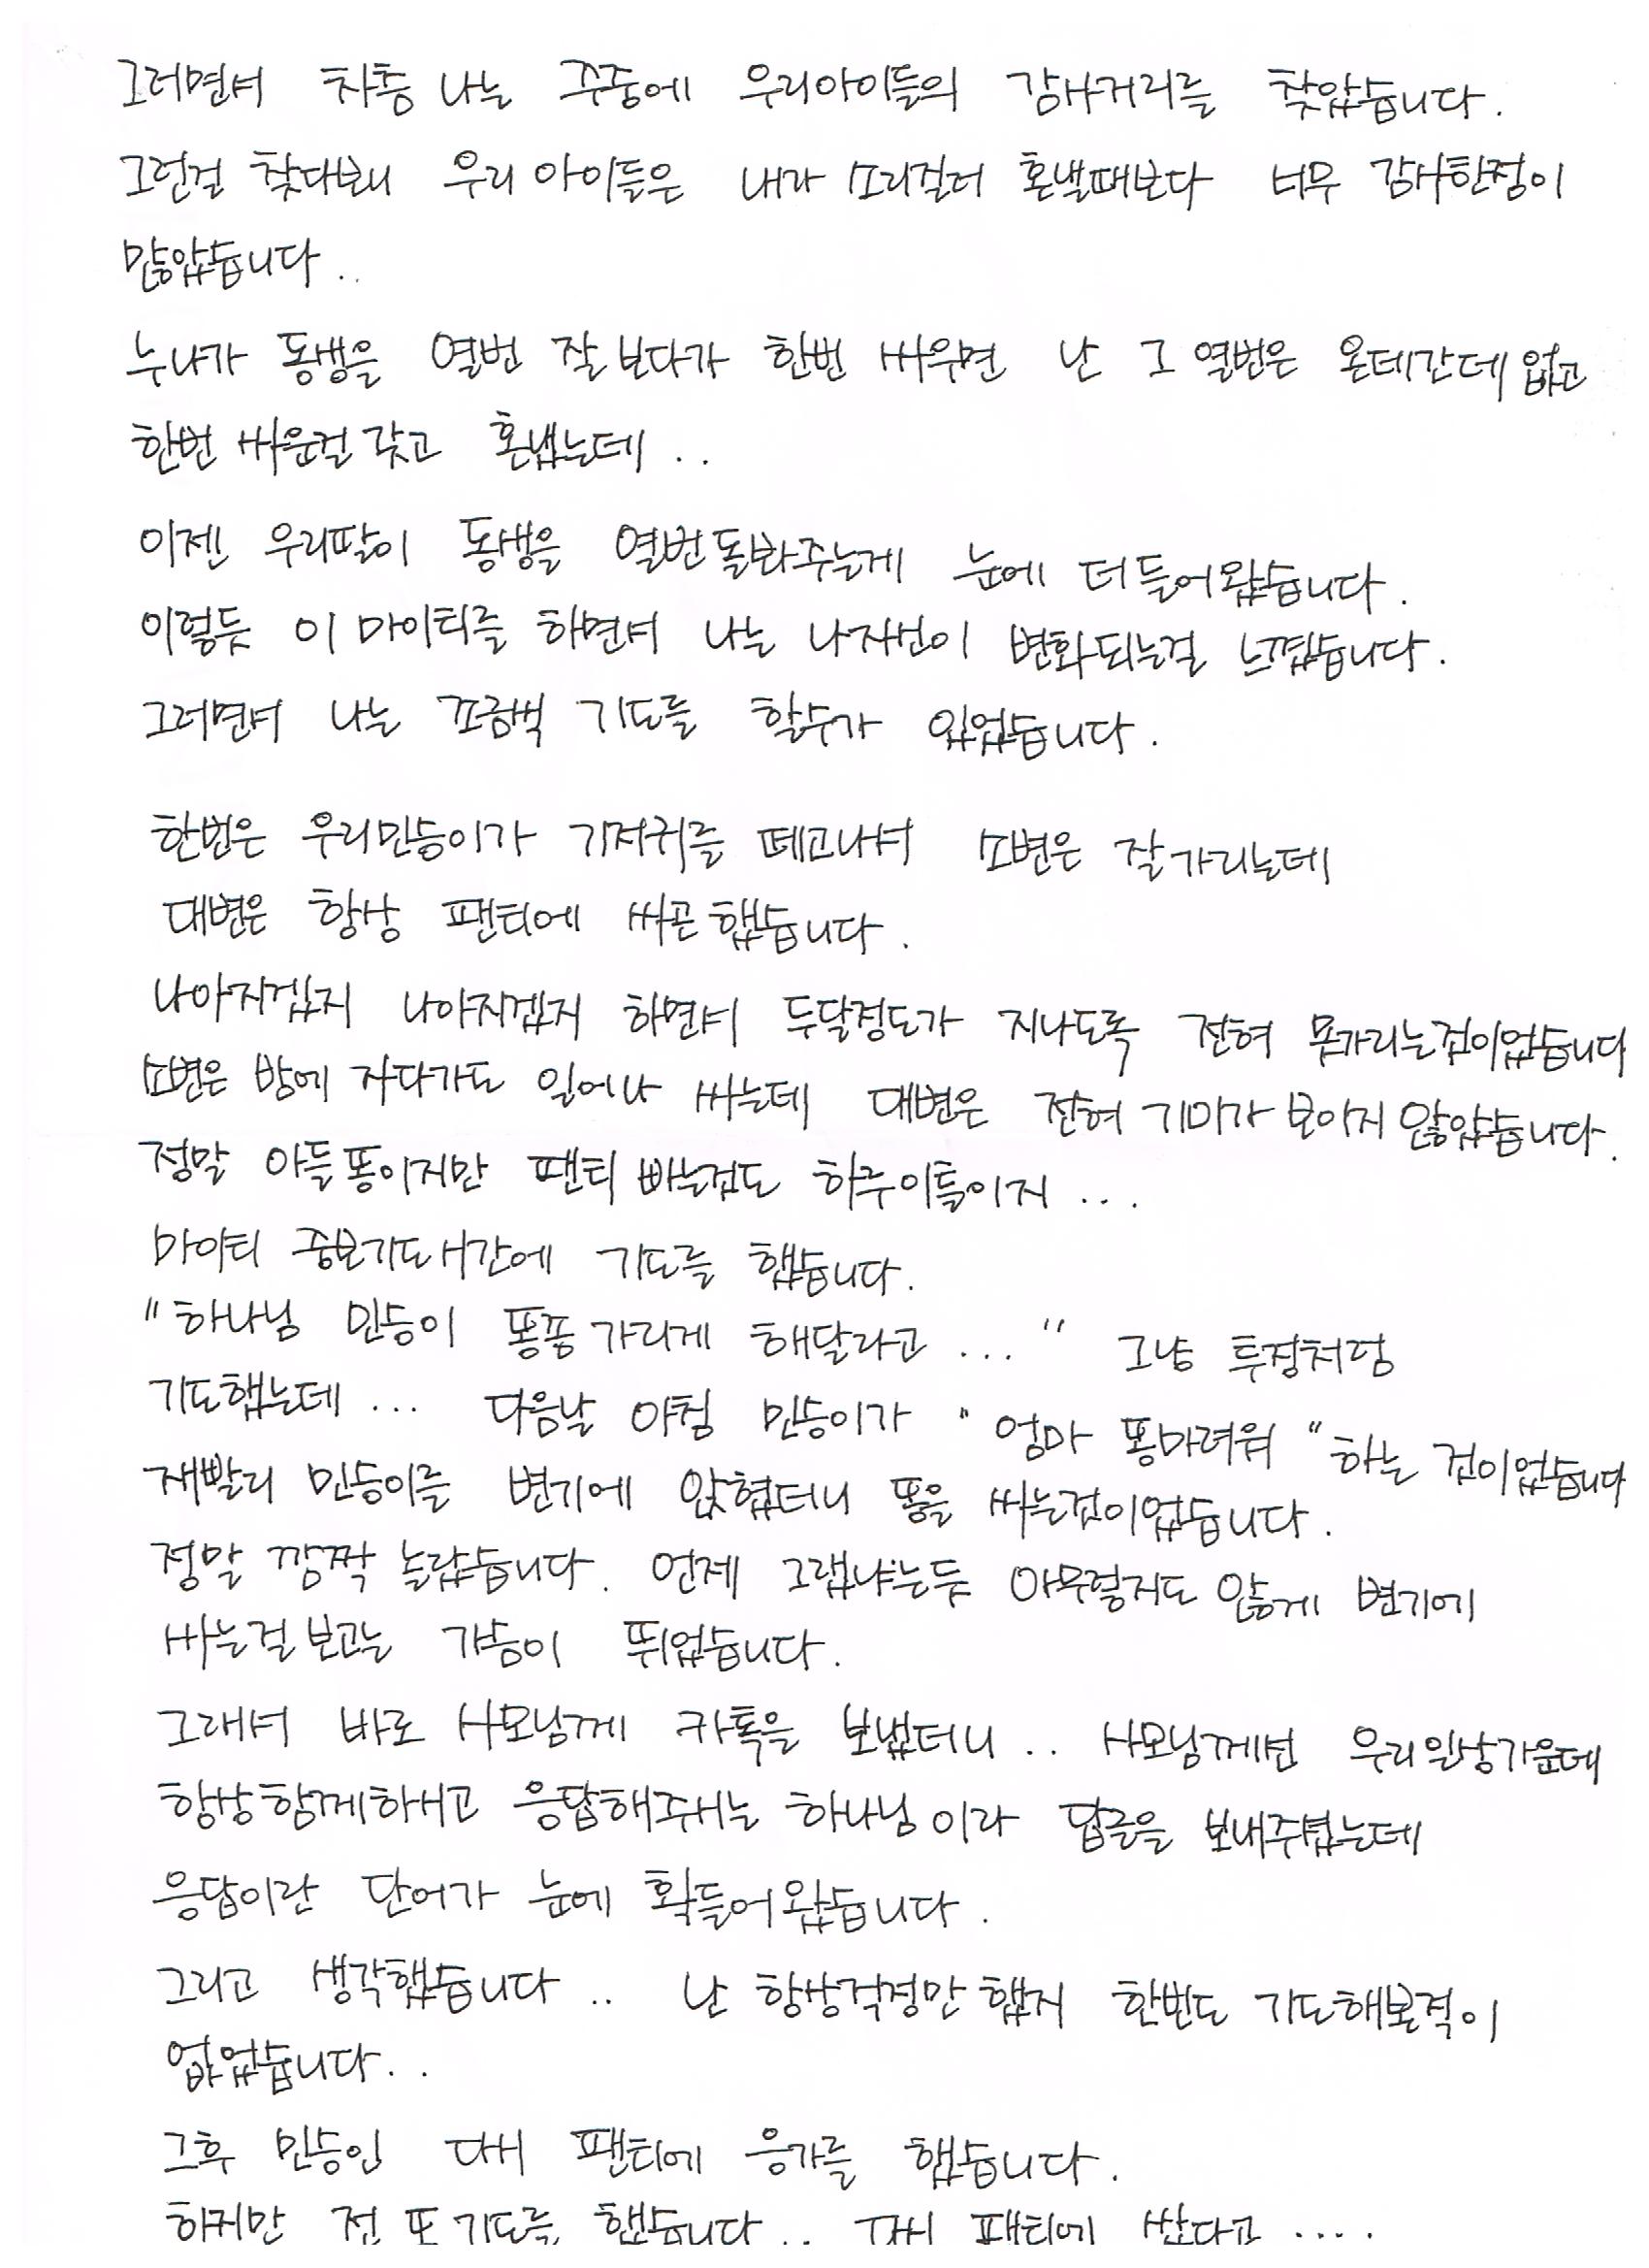 그러면서 차츰 나는 주중에 우리아이들의 감사거리를 찾았습니다.
그런걸 찾다보니 우리 아이들은 내가 소리질러 혼낼때보다 너무 감사한점이
많았습니다..
누나가 동생을 열번 잘 보다가 한번 싸우면 난 그 열번은 온데간데 없고
한번 싸운걸 갖고 혼냈는데..
이젠 우리딸이 동생을 열번 돌봐주는게 눈에 더 들어왔습니다.
이렇듯 이 마이티를 하면서 나는 나자신이 변화되는걸 느꼈습니다.
그러면서 나는 조금씩 기도를 할수가 있었습니다.
한번은 우리민승이가 기저귀를 떼고나서 소변은 잘 가리는데
대변은 항상 팬티에 싸곤 했습니다.
나아지겠지 나아지겠지 하면서 두달정도가 지나도록 전혀 못가리는것이었습니다
소변은 밤에 자다가도 일어나 싸는데 대변은 전혀 기미가 보이지 않았습니다.
정말 아들 똥이지만 팬티 빠는것도 하루이틀이지...
마이티 중보기도시간에 기도를 했습니다.
"하나님 민승이 똥좀 가리게 해달라고..." 그냥 투정처럼
기도했는데... 다음날 아침 민승이가 "엄마 똥마려워" 하는 것이었습니다
재빨리 민승이를 변기에 앉혔더니 똥을 싸는것이었습니다.
정말 깜짝 놀랐습니다. 언제 그랬냐는듯 아무렇지도 않게 변기에
싸는걸 보고는 가슴이 뛰었습니다.
그래서 바로 사모님께 카톡을 보냈더니.. 사모님께선 우리일상가운데
항상함께하시고 응답해주시는 하나님 이라 답글을 보내주셨는데
응답이란 단어가 눈에 확들어왔습니다.
그리고 생각했습니다.. 난 항상걱정만 했지 한번도 기도해본적이
없었습니다..
그후 민승인 다시 팬티에 응가를 했습니다.
하지만 전 또 기도를 했습니다.. 다시 팬티에 싼다고....